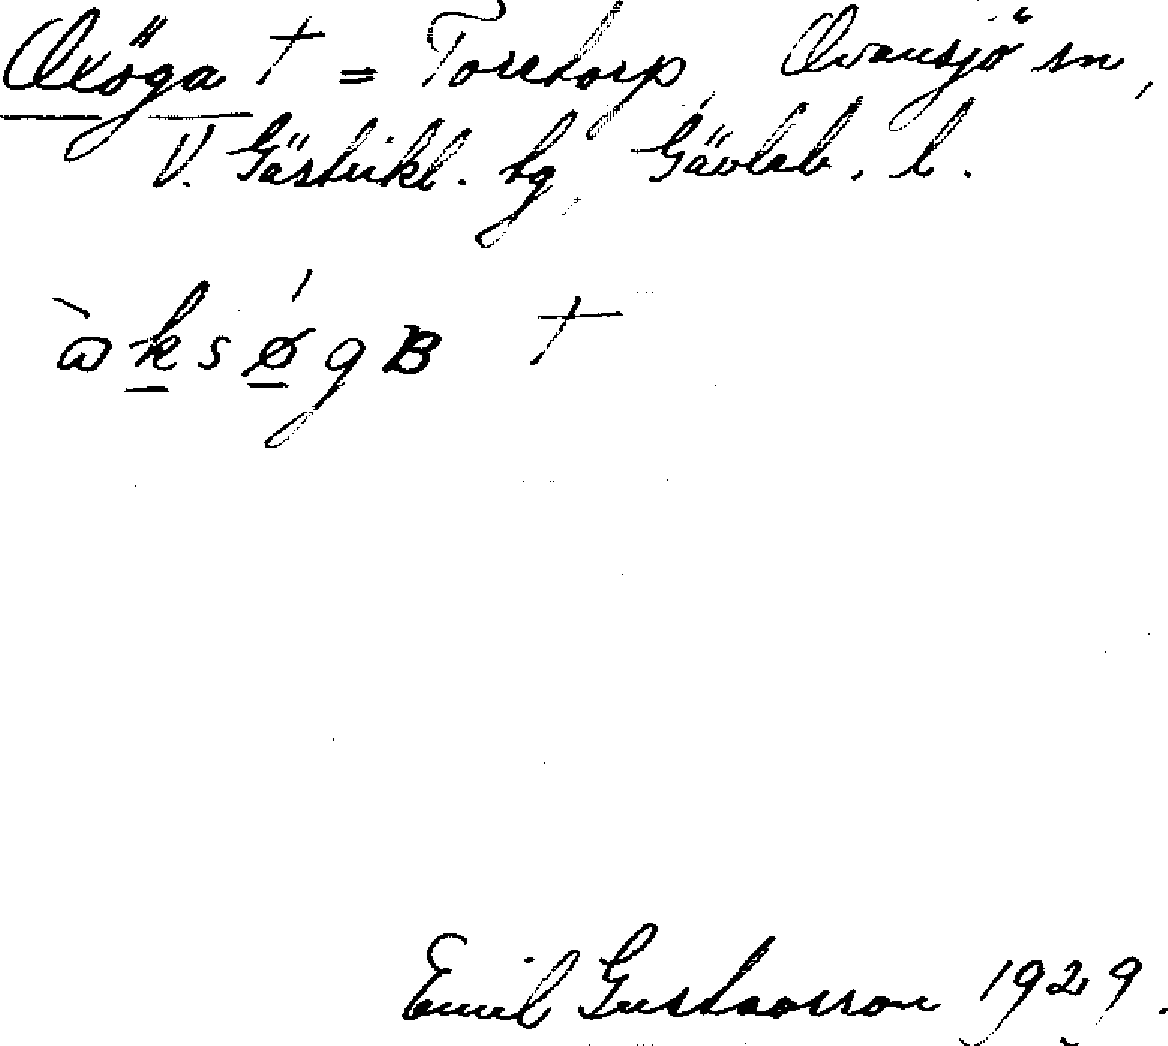 Oxöga † = Toretorp, Ovansjö sn,
V. Gästrikl. hg, Gävleb. l.
ὼksǿgʙ †
Emil Gustavsson 1929.